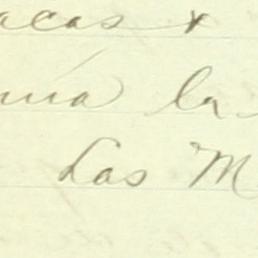 acas &
nía la
Las M